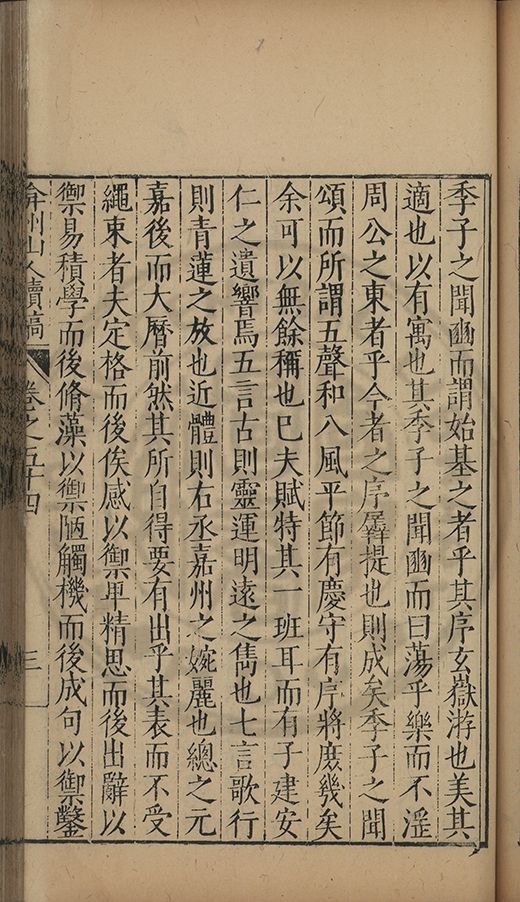 季子之聞豳而謂始基之者乎其序玄嶽游也美其
適也以有寓也其季子之聞豳而曰蕩乎樂而不淫
周公之東者乎今者之序羼提也則成矣季子之聞
頌而所謂五聲和八風平節有度守有序將庶幾矣
余可以無餘稱也已夫賦特其一班耳而有子建安
仁之遺響焉五言古則靈運明遠之雋也七言歌行
則青蓮之放也近體則右丞嘉州之婉麗也總之元
嘉後而大曆前然其所自得要有出乎其表而不受
繩束者夫定格而後俟感以禦卑精思而後出辭以
禦易積學而後脩藻以禦陋觸機而後成句以禦鑿
弇州山人續稿 卷之五十四 三